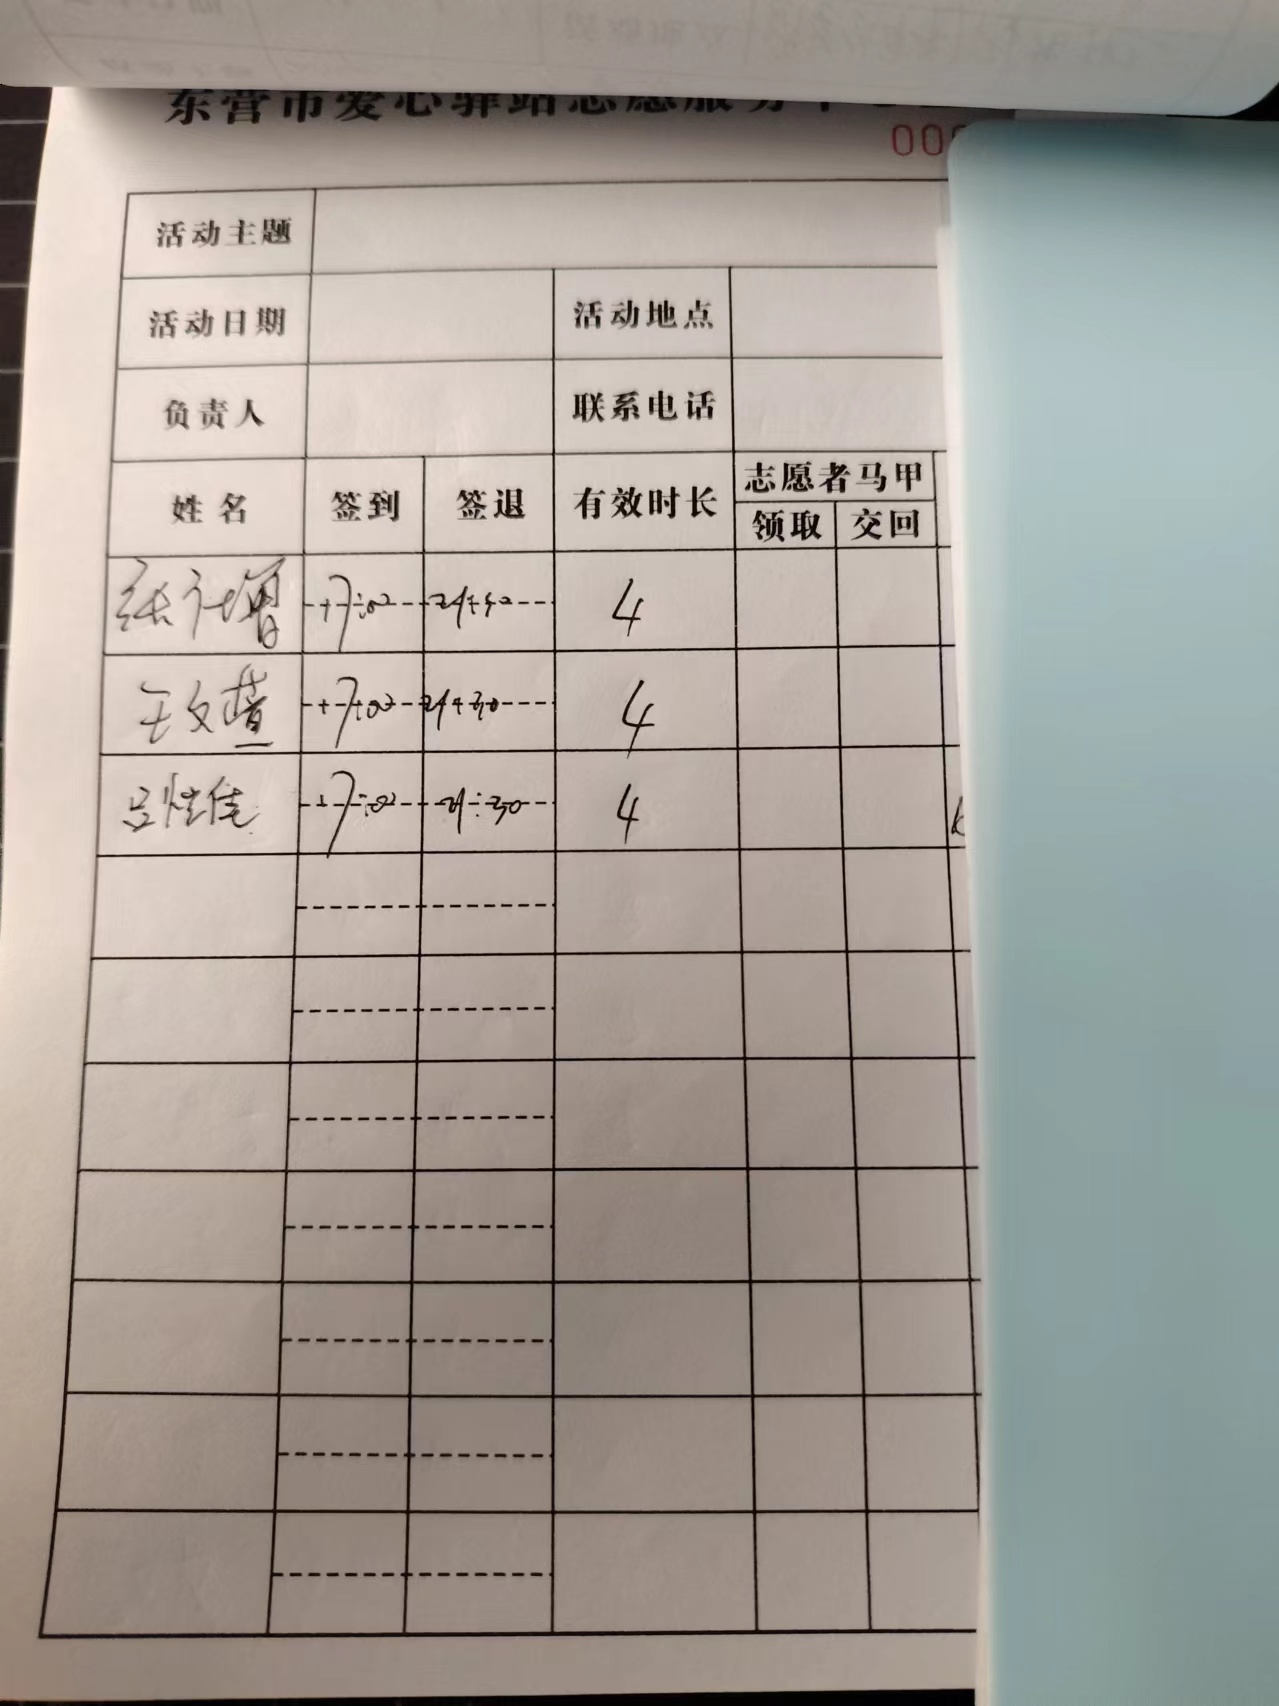 东营市爱心驿站志愿服务
000
活动主题
活动日期 活动地点
负责人 联系电话
姓名 签到 签退 有效时长 志愿者马甲
领取 交回
17:02 21:40 4
王文 17:02 21:30 4
吕 佳 17:02 21:30 4